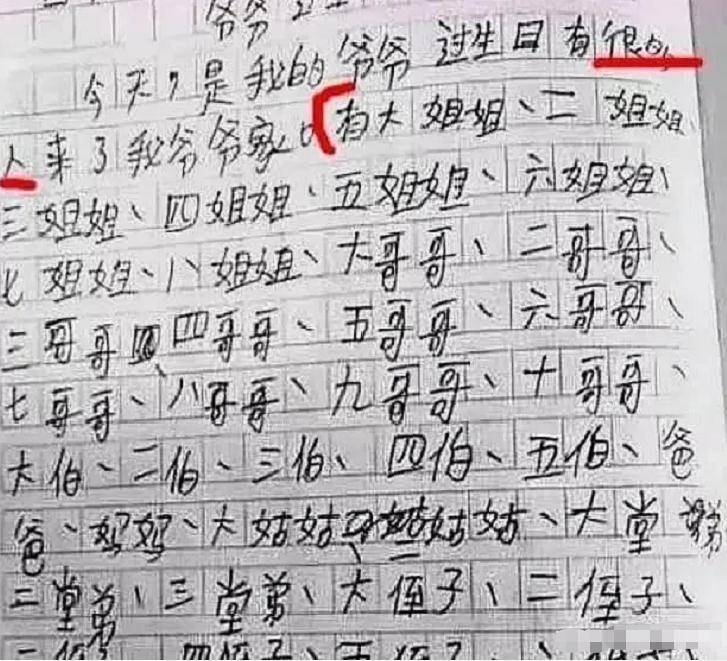 爷爷过生
今天,是我的爷爷过生日有很多
人来了我爷爷家。有大姐姐、二姐姐、
三姐姐、四姐姐、五姐姐、六姐姐、
七姐姐、八姐姐、大哥哥、二哥哥、
三哥哥四四哥哥、五哥哥、六哥哥、
七哥哥、八哥哥、九哥哥、十哥哥、
大伯、二伯、三伯、四伯、五伯、爸
爸、妈妈、大姑姑、二姑姑、大堂弟
二堂弟、三堂弟、大侄子、二侄子、
三侄子、四侄子、五侄子、